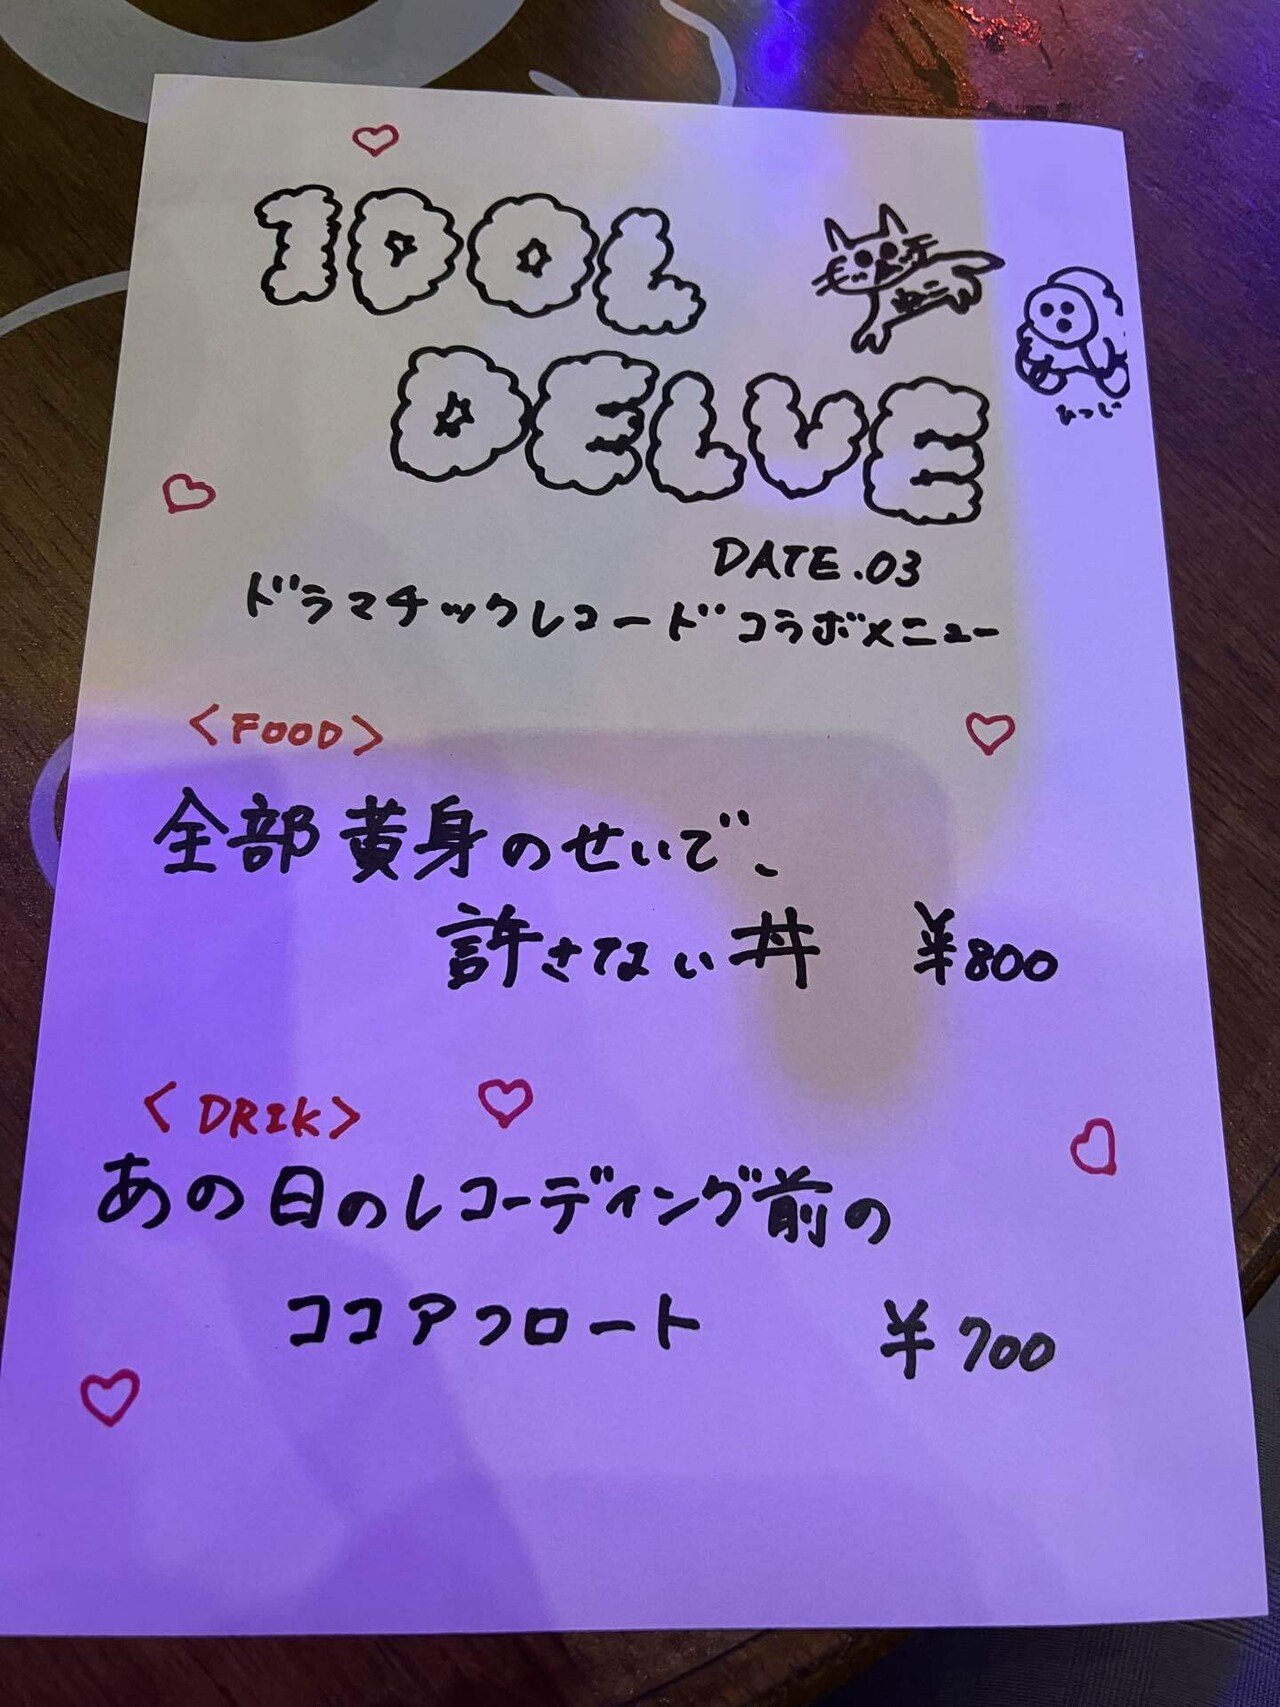 IDOL
ねこ
ひつじ
DELVE
DATE.03
ドラマチックレコードコラボメニュー
<FOOD>
全部黄身のせいで、
許さない丼 ¥800
<DRIK>
あの日のレコーディング前の
ココアフロート ¥700